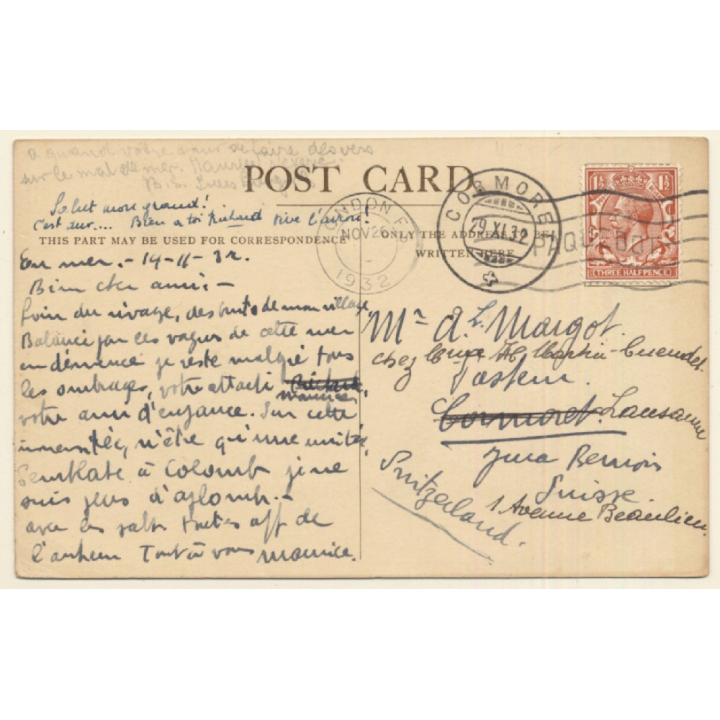 a quand votre
sur le mal de mer.
POST CARD.
Salut mon grand!
C'est sur.... Bien a toi Richard Vive l'aviron!
THIS PART MAY BE USED FOR CORRESPONDENCE
ONLY THE ADDRESS TO BE
WRITTEN HERE
LONDON F.S
NOV 26
1932
CORMORET
29.XI.32
PAQUEBOT
1½ 1½
THREE HALFPENCE
En mer. - 14-11-32.
Bien cher ami: -
Loin du rivage, des bruits de mon village
Balancé par les vagues de cette mer
en démence je reste malgré tous
les ombrages, votre attaché
Maurice
votre ami d'enfance. Sur cette
immensité, n'être qu'une unité,
Semblable à Colomb je ne
suis plus d'aplomb. -
avec les salut toutes aff de
l'auteur Tout à vous Maurice.
Mr. A. Margot.
chez Martin-Cuendet
Pasteur.
Cormoret. Lausanne
Jura Bernois
Suisse.
1 Avenue Beaulieu.
Switzerland.